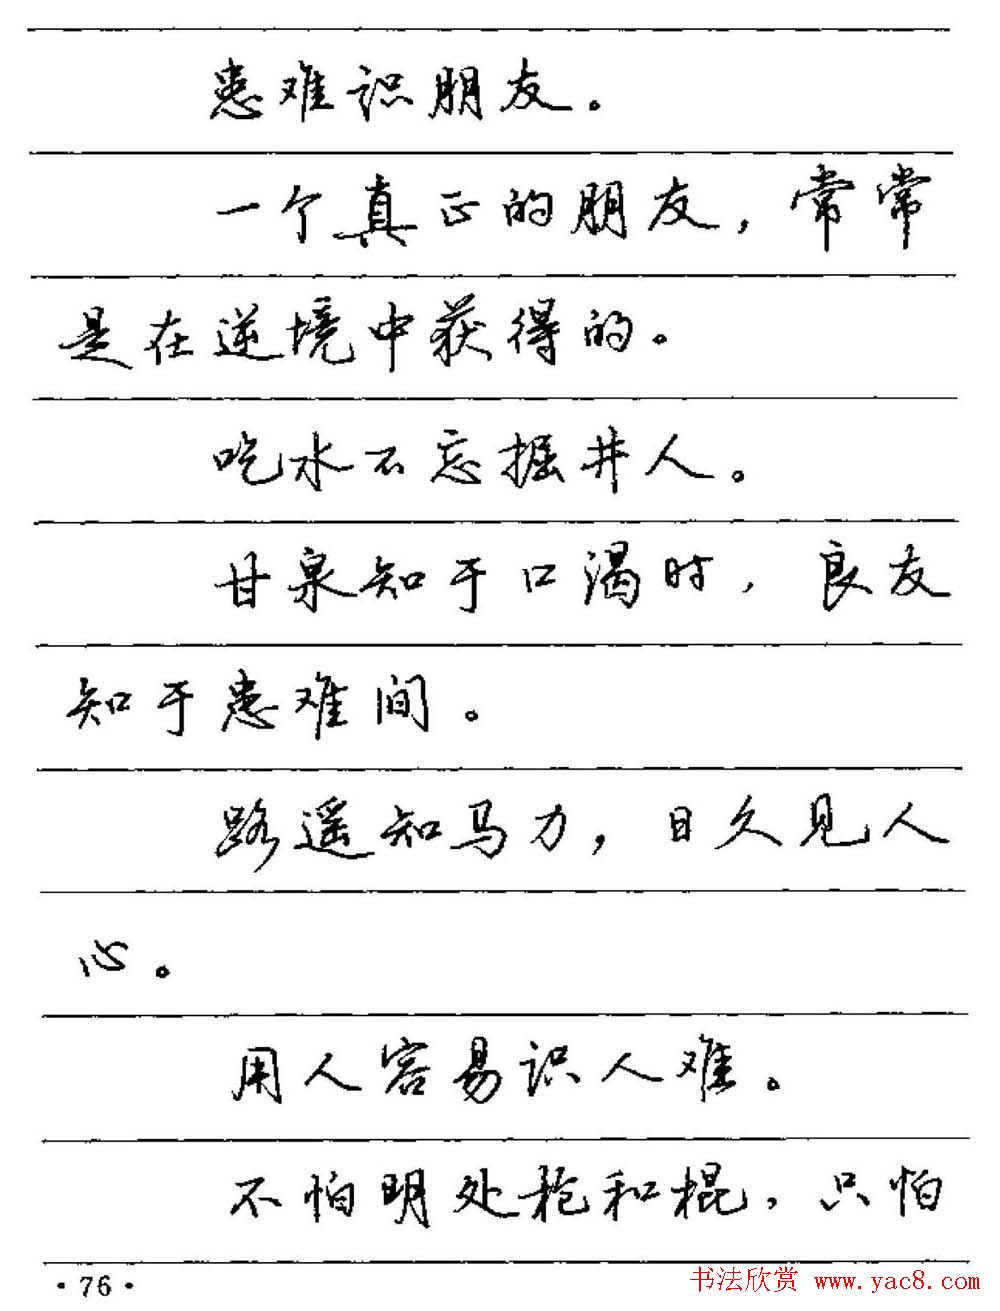 患难识朋友。
一个真正的朋友，常常
是在逆境中获得的。
吃水不忘掘井人。
甘泉知于口渴时，良友
知于患难间。
路遥知马力，日久见人
心。
用人容易识人难。
不怕明处枪和棍，只怕
·76·
书法欣赏 www.yac8.com